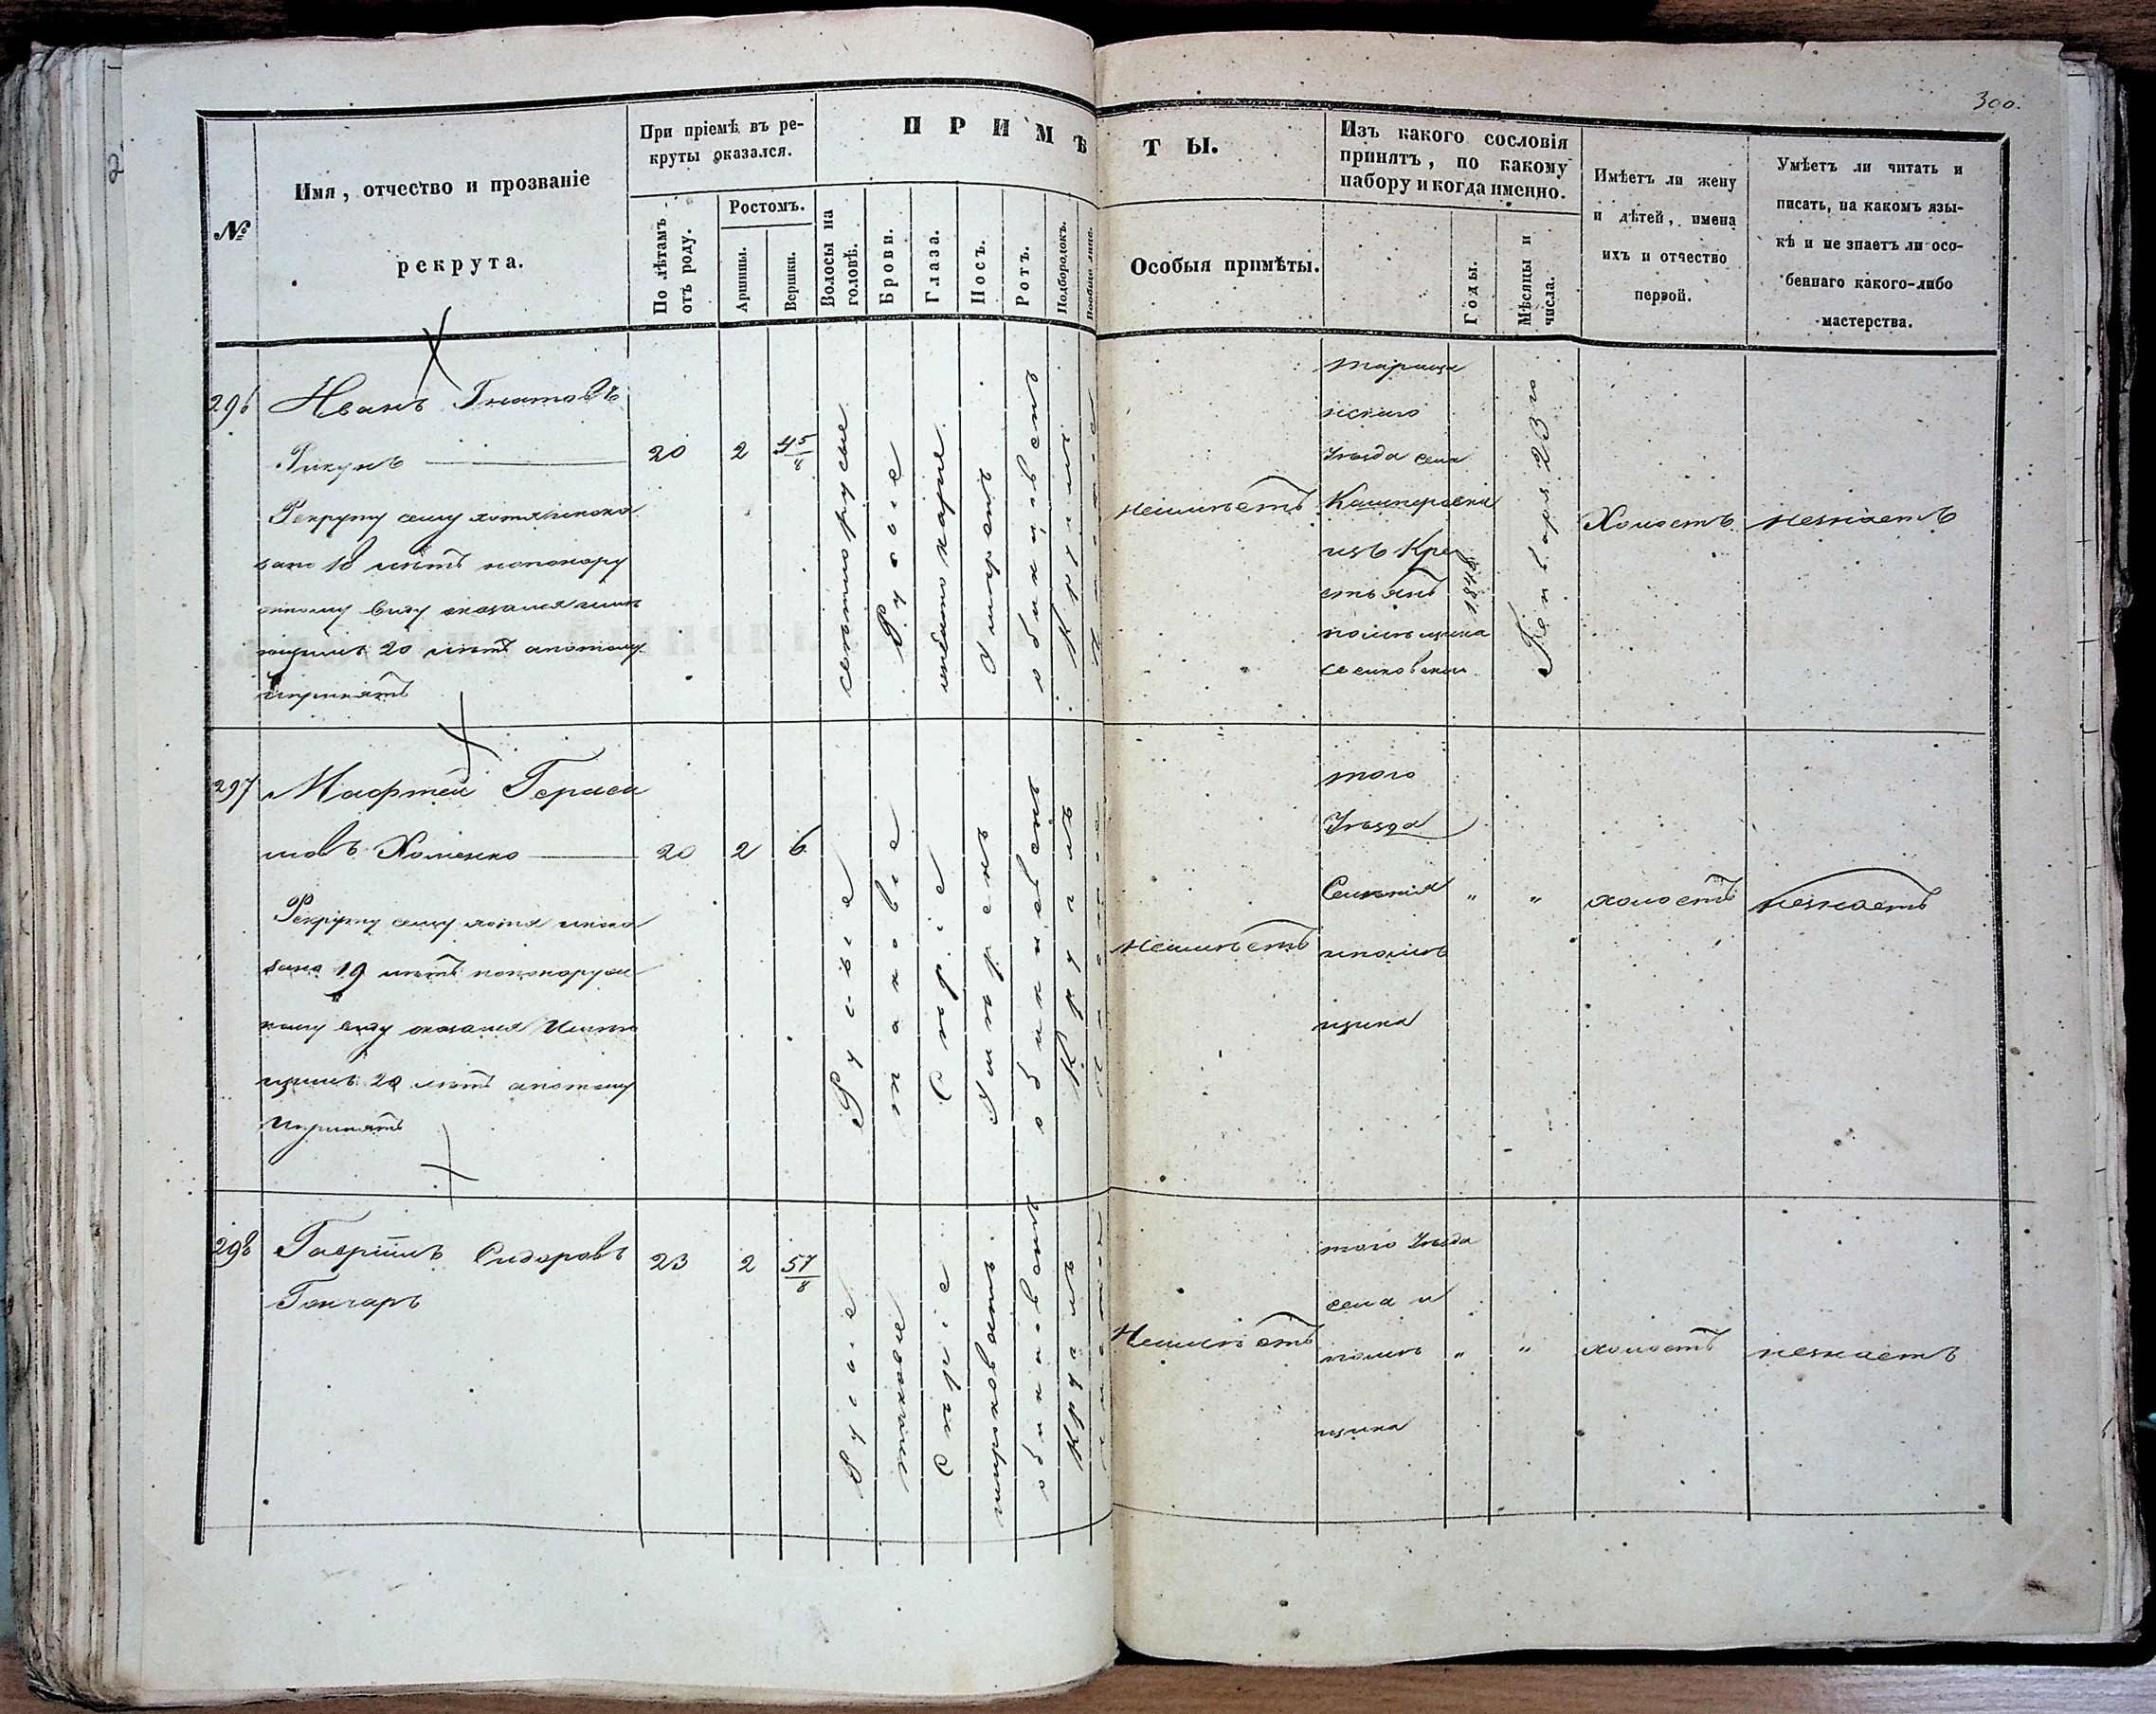 300.
№
Имя, отчество и прозваніе
рекрута.
При пріемѣ въ ре-
круты оказался.
По лѣтамъ
отъ роду.
Ростомъ.
Аршины.
Вершки.
ПРИМѢ
Волосы на
головѣ.
Брови.
Глаза.
Носъ.
Ротъ.
Подбородокъ.
Вообще лице.
ТЫ.
Особыя примѣты.
Изъ какого сословія
принятъ, по какому
набору и когда именно.
Годы.
Мѣсяцы и
числа.
Имѣетъ ли жену
и дѣтей, имена
ихъ и отчество
первой.
Умѣетъ ли читать и
писать, на какомъ язы-
кѣ и не знаетъ ли осо-
беннаго какого-либо
мастерства.
296
Иванъ Гнатовъ
Рекруту сему хотя
18 лѣтъ понару
жному виду оказался имѣ
ющимъ 20 лѣтъ апотому
ипринятъ
20
2
4 5/8
свѣтлорусые
Русые
карие
Умѣренъ
обикновенъ
Круглый
неимѣетъ
Тараща
нскаго
Уѣзда села
Кашперовки
изъ Кре
стьянъ
помѣщика
1848
Генваря 23го
Холостъ
незнаетъ
297
Мафтей Гераси
мовъ Хоменко
Рекруту сему хотя
19 лѣтъ понаружн
ному виду оказался Имѣю
щимъ 20 лѣтъ апотому
ипринятъ
20
2
6
Русые
таковые
Сѣрые
Умѣренъ
обикновенъ
Круглъ
Неимѣетъ
того
Уѣзда
Селенія
ипомѣ
щика
"
"
холостъ
незнаетъ
298
Гавріилъ Сидоровъ
Гончаръ
23
2
5 7/8
Русые
таковые
Сѣрые
широковатъ
обикновенъ
Круглъ
Неимѣетъ
того Уѣзда
села и
помѣ
щика
"
"
холостъ
незнаетъ